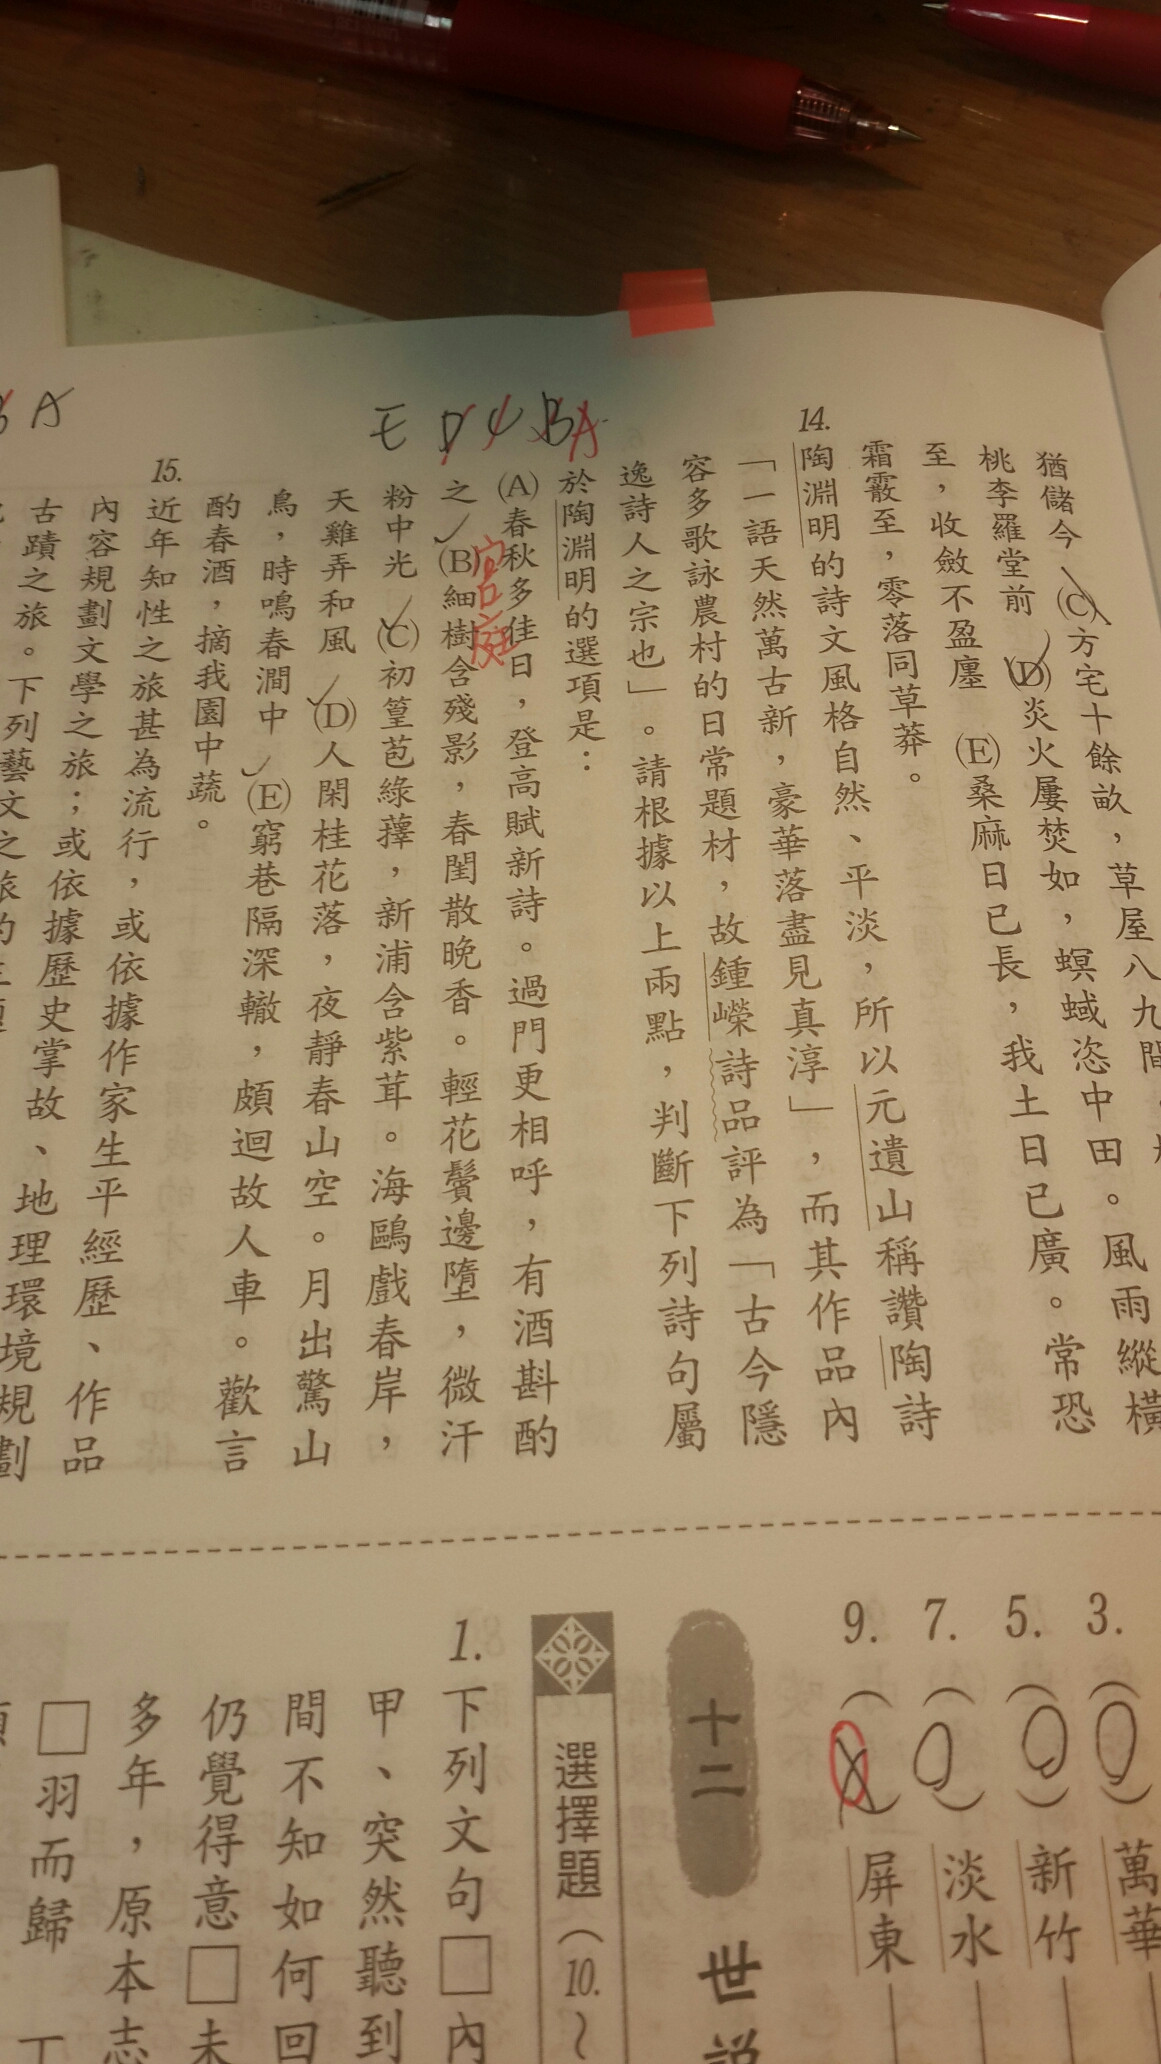 猶儲今 (C)方宅十餘畝，草屋八九間。
桃李羅堂前 (D)炎火屢焚如，螟蜮恣中田。風雨縱橫
至，收斂不盈廛 (E)桑麻日已長，我土日已廣。常恐
霜霰至，零落同草莽。
14.
陶淵明的詩文風格自然、平淡，所以元遺山稱讚陶詩
「一語天然萬古新，豪華落盡見真淳」，而其作品內
容多歌詠農村的日常題材，故鍾嶸詩品評為「古今隱
逸詩人之宗也」。請根據以上兩點，判斷下列詩句屬
於陶淵明的選項是：
A B C D E
(A)春秋多佳日，登高賦新詩。過門更相呼，有酒斟酌
宮庭
之 (B)細樹含殘影，春閨散晚香。輕花鬢邊墮，微汗
粉中光 (C)初篁苞綠蘀，新浦含紫茸。海鷗戲春岸，
天雞弄和風 (D)人閑桂花落，夜靜春山空。月出驚山
鳥，時鳴春澗中 (E)窮巷隔深轍，頗迴故人車。歡言
酌春酒，摘我園中蔬。
15.
A B
近年知性之旅甚為流行，或依據作家生平經歷、作品
內容規劃文學之旅；或依據歷史掌故、地理環境規劃
古蹟之旅。下列藝文之旅的
3. ( O ) 萬華
5. ( O ) 新竹
7. ( O ) 淡水
9. ( X ) 屏東
十二 世說
選擇題（10.～
1.
下列文句□內
甲、突然聽到
間不知如何回
仍覺得意□未
多年，原本志
□羽而歸